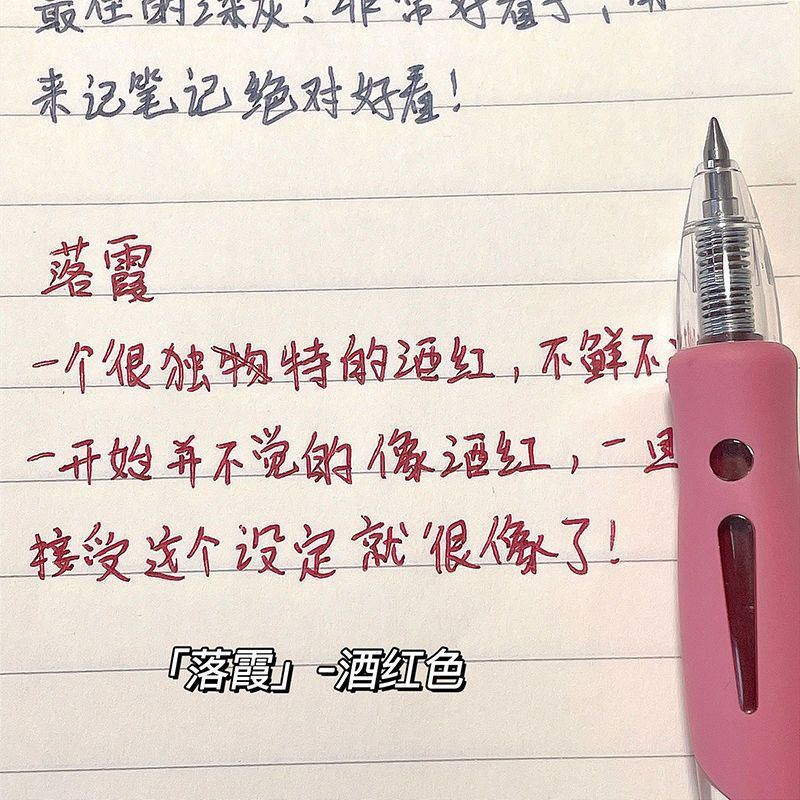 最佳的深灰!非常好看了,用
来记笔记绝对好看!
落霞
一个很独物特的酒红,不鲜不
一开始并不觉的像酒红,一旦
接受这个设定就很像了!
「落霞」-酒红色